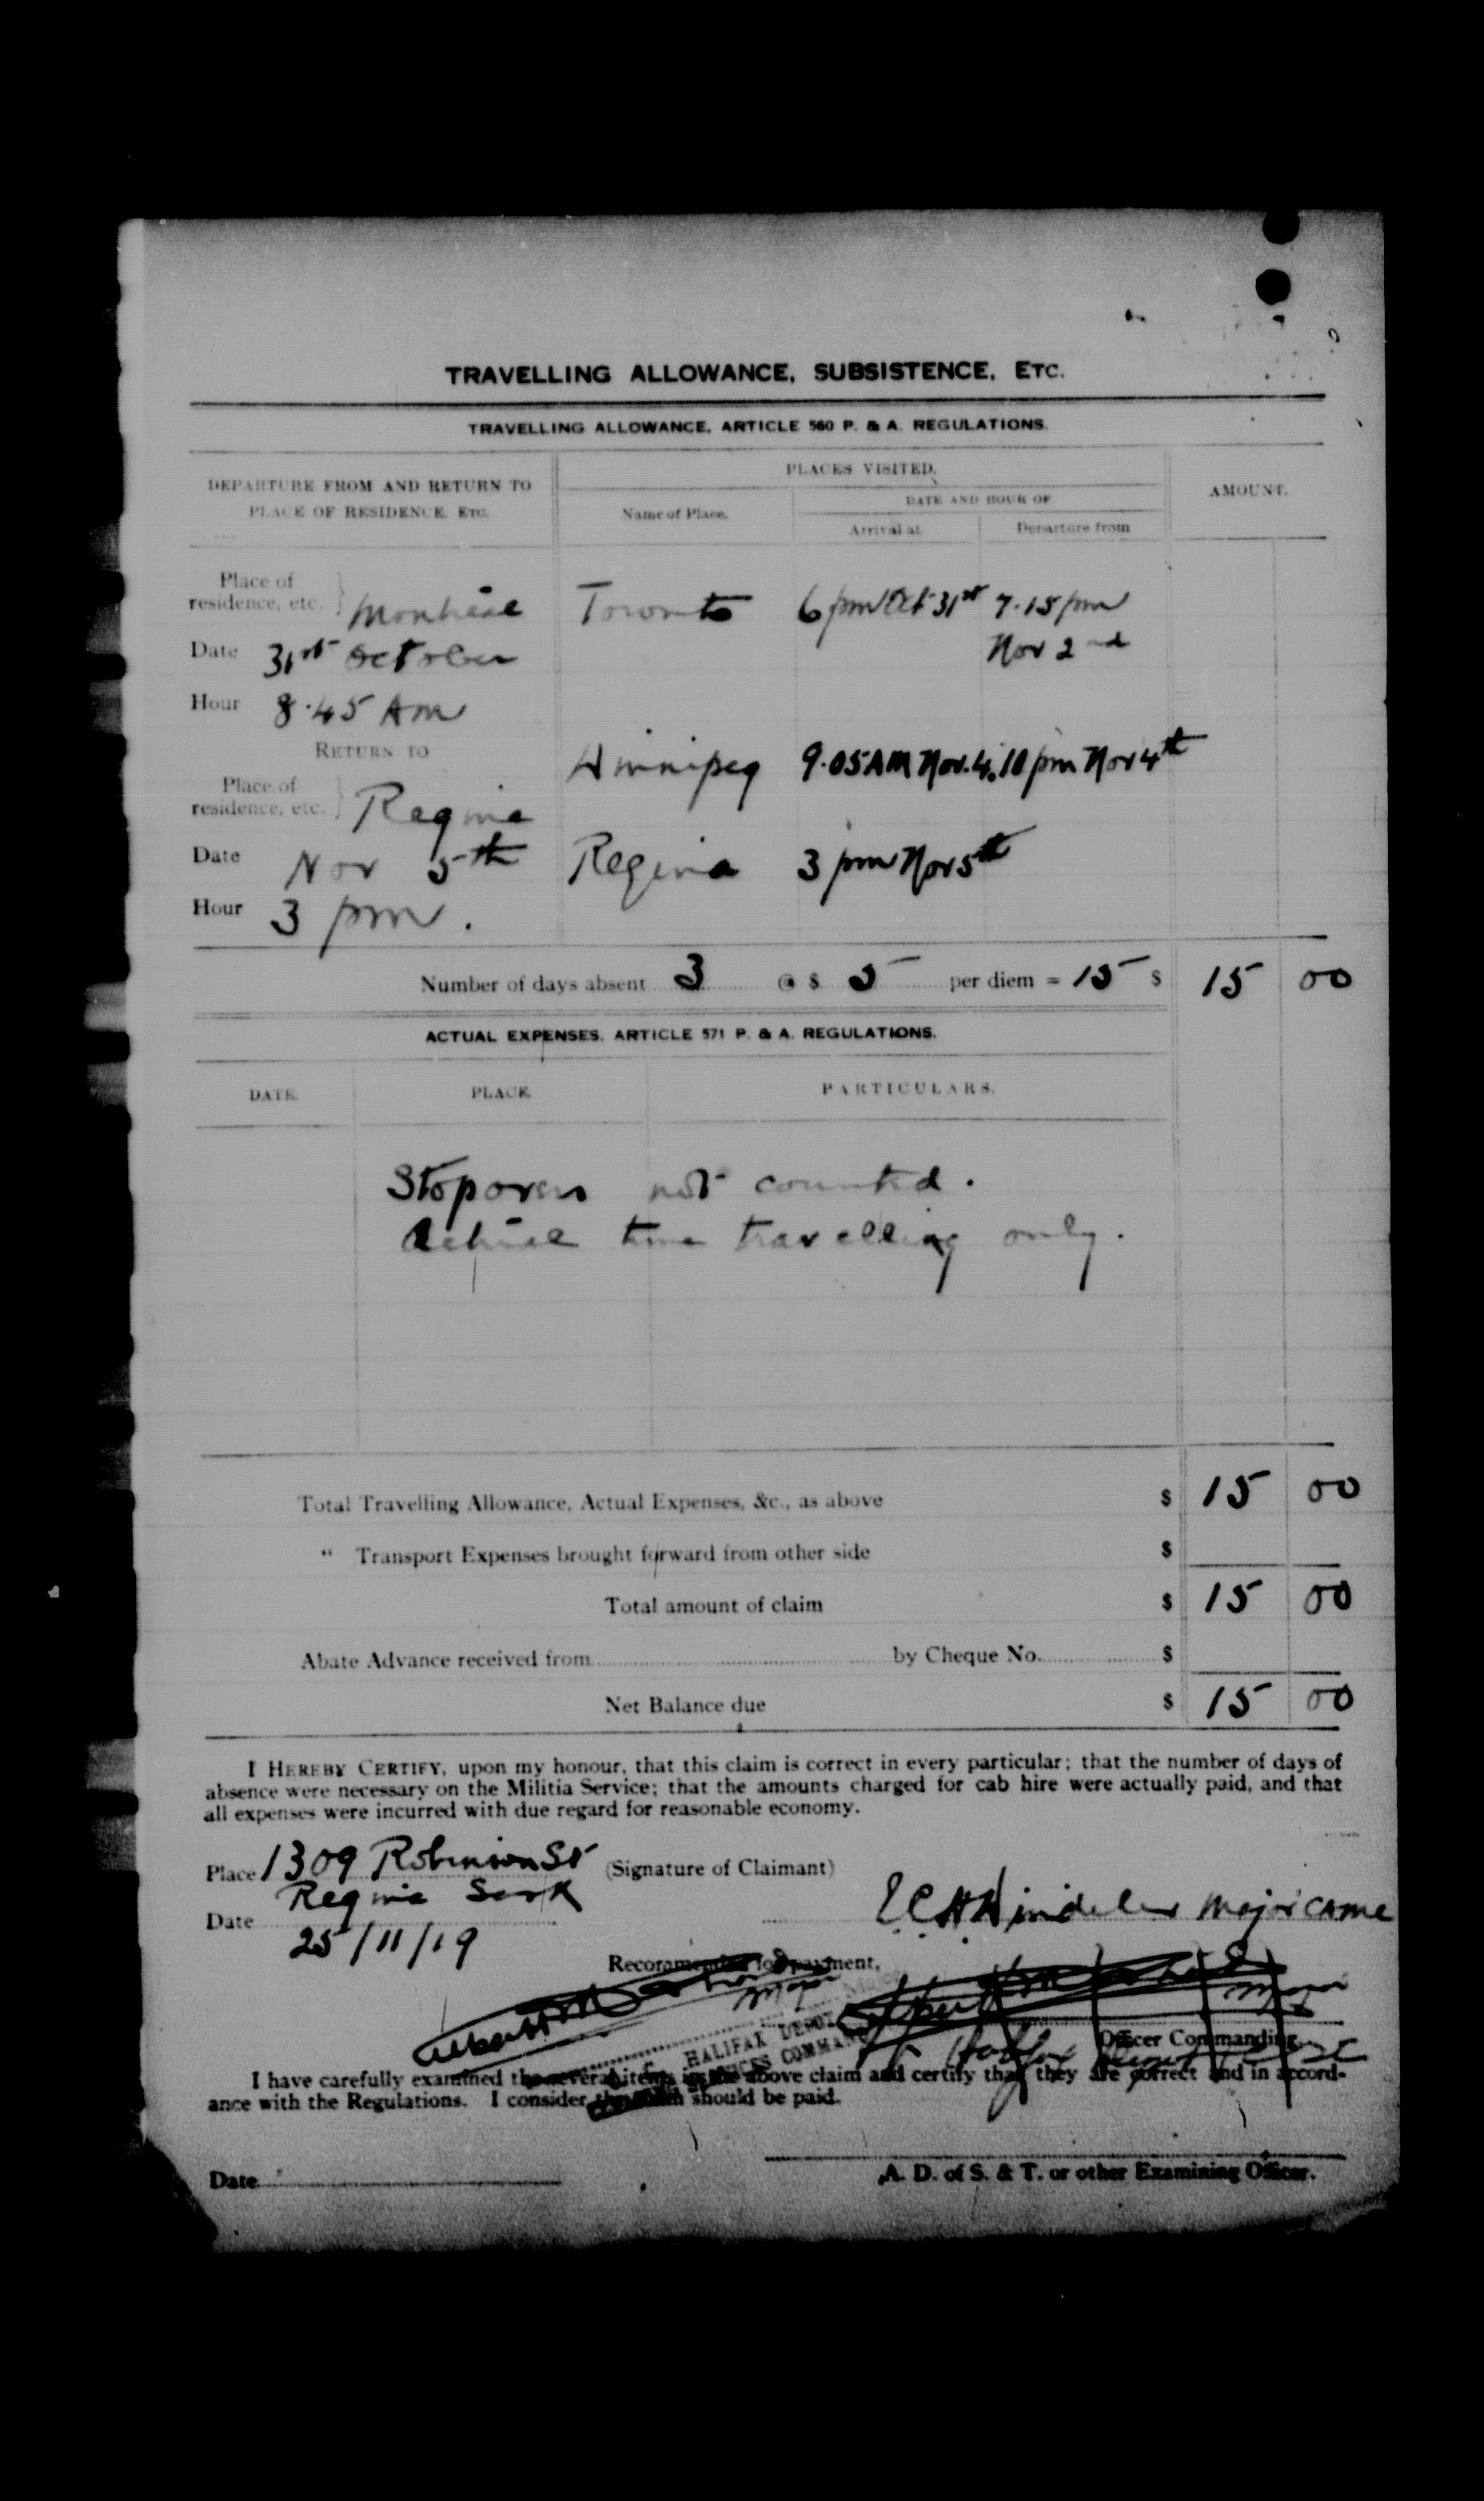 TRAVELLING ALLOWANCE, SUBSISTENCE, ETC.
TRAVELLING ALLOWANCE, ARTICLE 560 P. & A. REGULATIONS.
DEPARTURE FROM AND RETURN TO
PLACE OF RESIDENCE, ETC.
PLACES VISITED.
Name of Place.
DATE AND HOUR OF
Arrival at
Departure from
AMOUNT.
Place of
residence, etc. } Montreal
Toronto 6 pm Oct 31st 7.15 pm
Nov 2nd
Date 31st October
Hour 8.45 Am
RETURN TO
Winnipeg 9.05 AM Nov. 4. 10 pm Nov 4th
Place of
residence, etc. } Regina
Date Nov 5th
Regina 3 pm Nov 5th
Hour 3 pm.
Number of days absent 3 @ $ 5 per diem = 15 $ 15 00
ACTUAL EXPENSES, ARTICLE 571 P. & A. REGULATIONS.
DATE. PLACE. PARTICULARS.
Stopovers not counted.
Actual time travelling only.
Total Travelling Allowance, Actual Expenses, &c., as above $ 15 00
" Transport Expenses brought forward from other side $
Total amount of claim $ 15 00
Abate Advance received from by Cheque No. $
Net Balance due $ 15 00
I HEREBY CERTIFY, upon my honour, that this claim is correct in every particular; that the number of days of
absence were necessary on the Militia Service; that the amounts charged for cab hire were actually paid, and that
all expenses were incurred with due regard for reasonable economy.
Place 1309 Robinson St (Signature of Claimant)
Regina Sask
Major CAMC
Date 25/11/19
Recommended for payment,
Major
Major
HALIFAX DEPOT
Officer Commanding
I have carefully examined the several items in the above claim and certify that they are correct and in accord-
ance with the Regulations. I consider should be paid.
Date
A. D. of S. & T. or other Examining Officer.